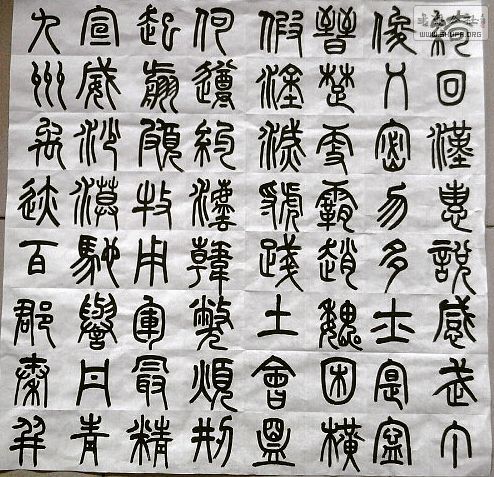 綺回漢惠說感武丁
俊乂密勿多士寔寧
晉楚更霸趙魏困橫
假塗滅虢踐土會盟
何遵約法韓弊煩刑
起翦頗牧用軍最精
宣威沙漠馳譽丹青
九州禹迹百郡秦并
WWW.SHUFA.ORG